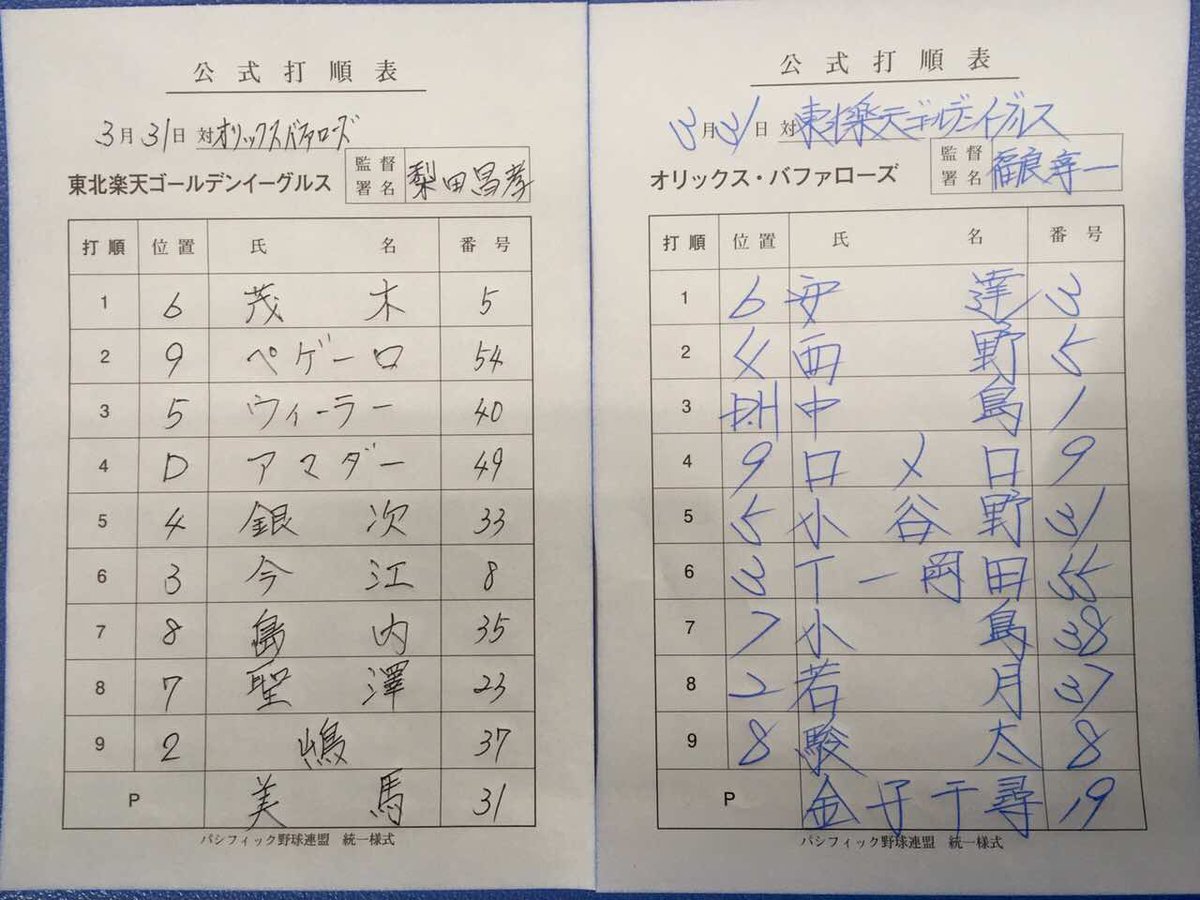 公式打順表
3月31日 対 オリックスバファローズ
東北楽天ゴールデンイーグルス 監督署名 梨田昌孝
打順 位置 氏名 番号
1 6 茂木 5
2 9 ペゲーロ 54
3 5 ウィーラー 40
4 D アマダー 49
5 4 銀次 33
6 3 今江 8
7 8 島内 35
8 7 聖澤 23
9 2 嶋 37
P 美馬 31
パシフィック野球連盟 統一様式
公式打順表
3月31日 対 東北楽天ゴールデンイーグルス
オリックス・バファローズ 監督署名 福良淳一
打順 位置 氏名 番号
1 6 安達 3
2 4 西野 5
3 DH 中島 1
4 9 ロメロ 9
5 5 小谷野 31
6 3 T-岡田 55
7 7 小島 38
8 2 若月 37
9 8 駿太 8
P 金子千尋 19
パシフィック野球連盟 統一様式